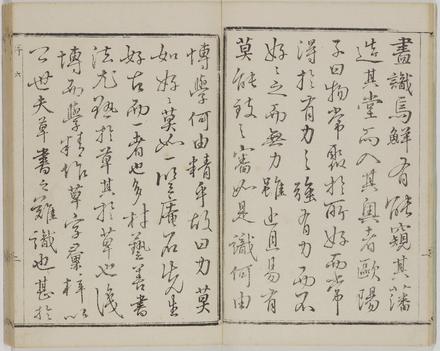 盡識焉鮮有能窺其藩
造其堂而入其奧者歐陽
子曰物常聚於所好而常
得於有力之強有力而不
好好之而無力雖近且易有
莫能致之審如是識何由
博學何由精乎故曰力莫
如好好莫如一豎庵石先生
好古而一者也多材藝善書
法尤熟於草其於草也識
博而學精作草字彙梓以
公世夫草書之難識也甚於
序 六